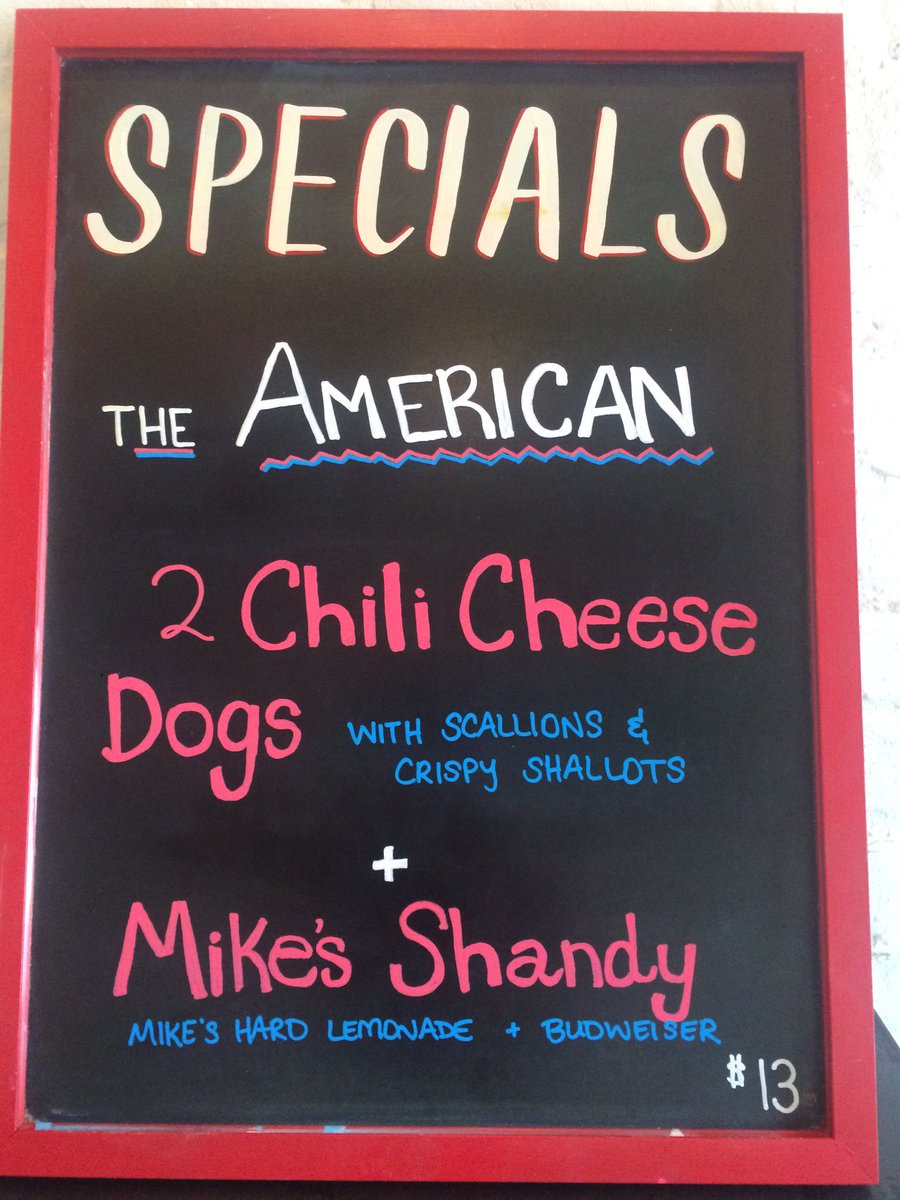 SPECIALS
THE AMERICAN
2 Chili Cheese
Dogs WITH SCALLIONS &
CRISPY SHALLOTS
+
Mike's Shandy
MIKE'S HARD LEMONADE + BUDWEISER
$13